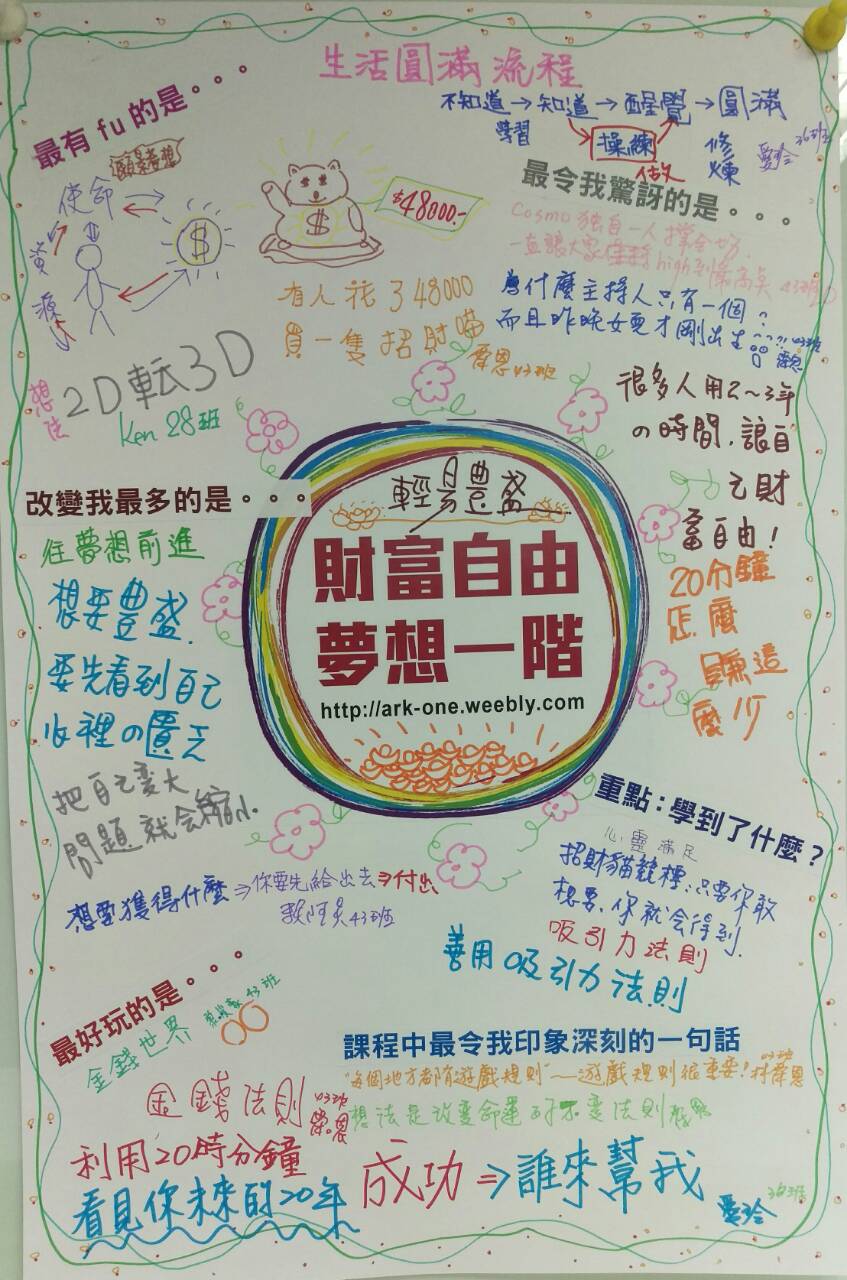 生活圓滿流程
不知道→知道→醒覺→圓滿
學習
操練
做
修煉
愛玲
36班
最有 fu 的是。。。
願景夢想
使命
資源
$
$
$48000.-
有人花了48000
買一隻招財喵
43班
2D転3D
想法
Ken 28班
最令我驚訝的是。。。
Cosmo 独自一人撐全場
一直讓大家維持high到最高點 43班
為什麼主持人只有一個?
而且昨晚女兒才剛出生
43班
很多人用2～3年
の時間,讓自
己財
富自由!
20分鐘
怎麼
賺這
麼少
輕易豐盛
財富自由
夢想一階
http://ark-one.weebly.com
改變我最多的是。。。
往夢想前進
想要豐盛
要先看到自己
心裡の匱乏
把自己变大
問題就会縮小.
想要獲得什麼⇒你要先給出去⇒付出
43班
重點：學到了什麼？
心靈滿足
招財貓競標:只要你敢
想要、你就会得到.
吸引力法則
善用吸引力法則
最好玩的是。。。
43班
金錢世界
金錢法則
43班
利用20時分鐘
看見你未來的20年
課程中最令我印象深刻的一句話
"每個地方都有遊戲規則"—遊戲規則很重要!
43班
想法是改变命運的不变法則
成功⇒誰來幫我
愛玲
36班